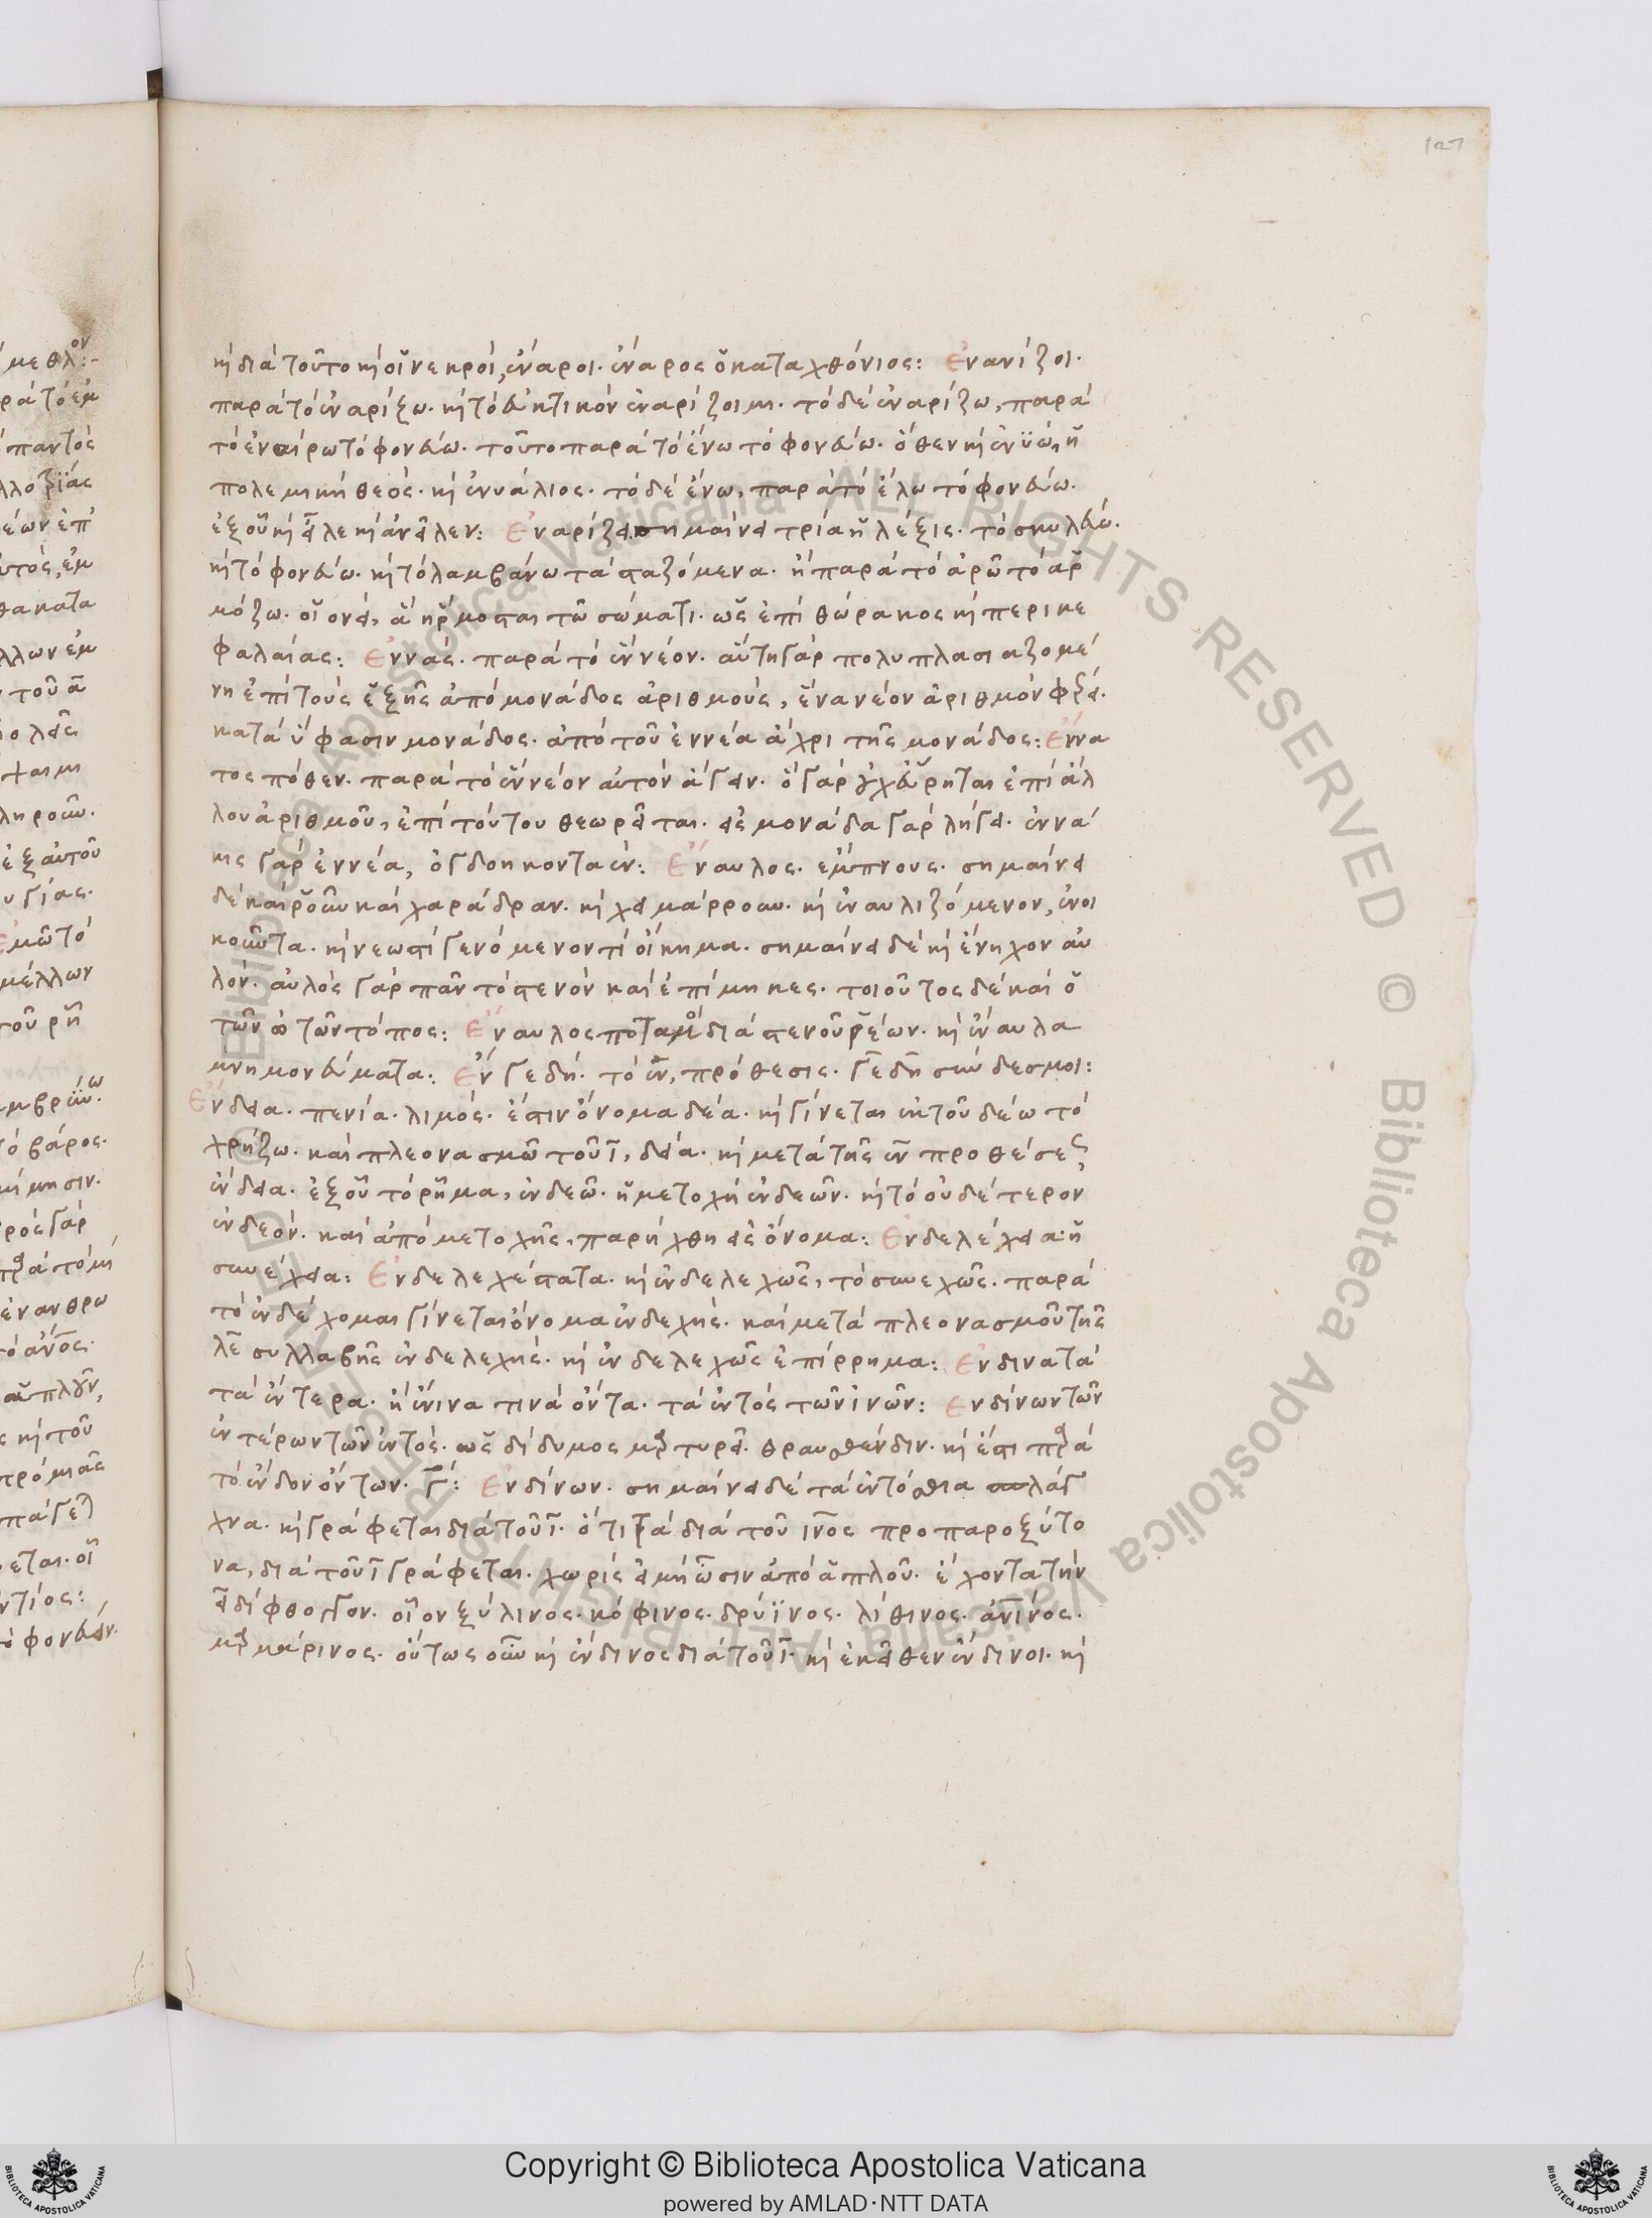 127
κὶ διὰ τοῦτο κὶ οἱ νεκροὶ, ἔναροι. ἔναρος ὁ καταχθόνιος: Ἐναρίζοι.
παρὰ τὸ ἐναρίζω. κὶ τὸ εὐκτικὸν ἐναρίζοιμι. τὸ δὲ ἐναρίζω, παρὰ
τὸ ἐναίρω τὸ φονεύω. τοῦτο παρὰ τὸ ἔνω τὸ φονεύω. ὅθεν κὶ ἐνϋώ, ἡ
πολεμικὴ θεός. κὶ ἐνυάλιος. τὸ δὲ ἔνω, παρὰ τὸ ἕλω τὸ φονεύω.
ἐξ οὗ κὶ εἷλε κὶ ἀνεῖλεν: Ἐναρίζει σημαίνει τρία ἡ λέξις. τὸ σκυλεύω.
κὶ τὸ φονεύω. κὶ τὸ λαμβάνω τὰ σταζόμενα. ἢ παρὰ τὸ ἀρῶ τὸ ἁρ
μόζω. οἱονεὶ, ἃ ἥρμοσται τῶ σώματι. ὡς ἐπὶ θώρακος κὶ περικε
φαλαίας: Ἐννάς. παρὰ τὸ ἓν νέον. αὕτη γὰρ πολυπλασιαζομέ
νη ἐπὶ τοὺς ἑξῆς ἀπὸ μονάδος ἀριθμοὺς, ἕνα νέον ἀριθμὸν φέρει.
κατὰ ὕφασιν μονάδος. ἀπὸ τοῦ ἐννέα ἄχρι τῆς μονάδος: Ἔννα
τος πόθεν. παρὰ τὸ ἓν νέον αὐτὸν ἄγειν. ὃ γὰρ οὐχ εὕρηται ἐπὶ ἄλ
λου ἀριθμοῦ, ἐπὶ τούτου θεωρεῖται. εἰς μονάδα γὰρ λήγει. ἐννά
κις γὰρ ἐννέα, ὀγδοηκονταέν: Ἔναυλος. ἔμπνους. σημαίνει
δὲ καὶ ῥοῦν καὶ χαράδραν. κὶ χειμάρρουν. κὶ ἐναυλιζόμενον, ἐνοι
κοῦντα. κὶ νεωστὶ γενόμενόν τι οἴκημα. σημαίνει δὲ κὶ ἔνηχον αὐ
λόν. αὐλὸς γὰρ πᾶν τὸ στενὸν καὶ ἐπίμηκες. τοιοῦτος δὲ καὶ ὁ
τῶν ὤτων τόπος: Ἔναυλος ποταμὸς διὰ στενοῦ ῥέων. κὶ ἔναυλα
μνημονεύματα: Ἔν γε δή. τὸ ἐν, πρόθεσις. γε δὴ σύνδεσμοι:
Ἔνδεια. πενία. λιμός. ἔστιν ὄνομα δέα. κὶ γίνεται ἐκ τοῦ δέω τὸ
χρήζω. καὶ πλεονασμῶ τοῦ ι, δεία. κὶ μετὰ τῆς ἐν προθέσεως,
ἔνδεια. ἐξ οὗ τὸ ῥῆμα, ἐνδεῶ. ἡ μετοχὴ ἐνδεῶν. κὶ τὸ οὐδέτερον
ἐνδεόν. καὶ ἀπὸ μετοχῆς, παρήχθη εἰς ὄνομα: Ἐνδελέχεια: ἡ
συνέχεια: Ἐνδελεχέστατα. κὶ ἐνδελεχῶς, τὸ συνεχῶς. παρὰ
τὸ ἐνδέχομαι γίνεται ὄνομα ἐνδεχής. καὶ μετὰ πλεονασμοῦ τῆς
λε συλλαβῆς ἐνδελεχής. κὶ ἐνδελεχῶς ἐπίρρημα: Ἔνδινα τὰ
τὰ ἔντερα. ἢ ἔνινα τινὰ ὄντα. τὰ ἐντὸς τῶν ἰνῶν: Ἐνδίνων τῶν
ἐντέρων τῶν ἐντός. ὡς δίδυμος μαρτυρεῖ. θραυσθένδιν. κὶ ἔστι παρὰ
τὸ ἔνδον ὄντων. Γ: Ἐνδίνων. σημαίνει δὲ τὰ ἐντόσθια σπλάγ
χνα. κὶ γράφεται διὰ τοῦ ι. ὅτι τὰ διὰ τοῦ ινος προπαροξύτο
να, διὰ τοῦ ι γράφεται. χωρὶς εἰ μὴ ὦσιν ἀπὸ ἁπλοῦ. ἔχοντα τὴν
ει δίφθογγον. οἷον ξύλινος. κόφινος. δρύϊνος. λίθινος. ἀνθινός.
μαρμάρινος. οὕτως οὖν κὶ ἔνδινος διὰ τοῦ ι. κὶ ἐκεῖθεν ἔνδινοι. κὶ
Copyright © Biblioteca Apostolica Vaticana
powered by AMLAD·NTT DATA